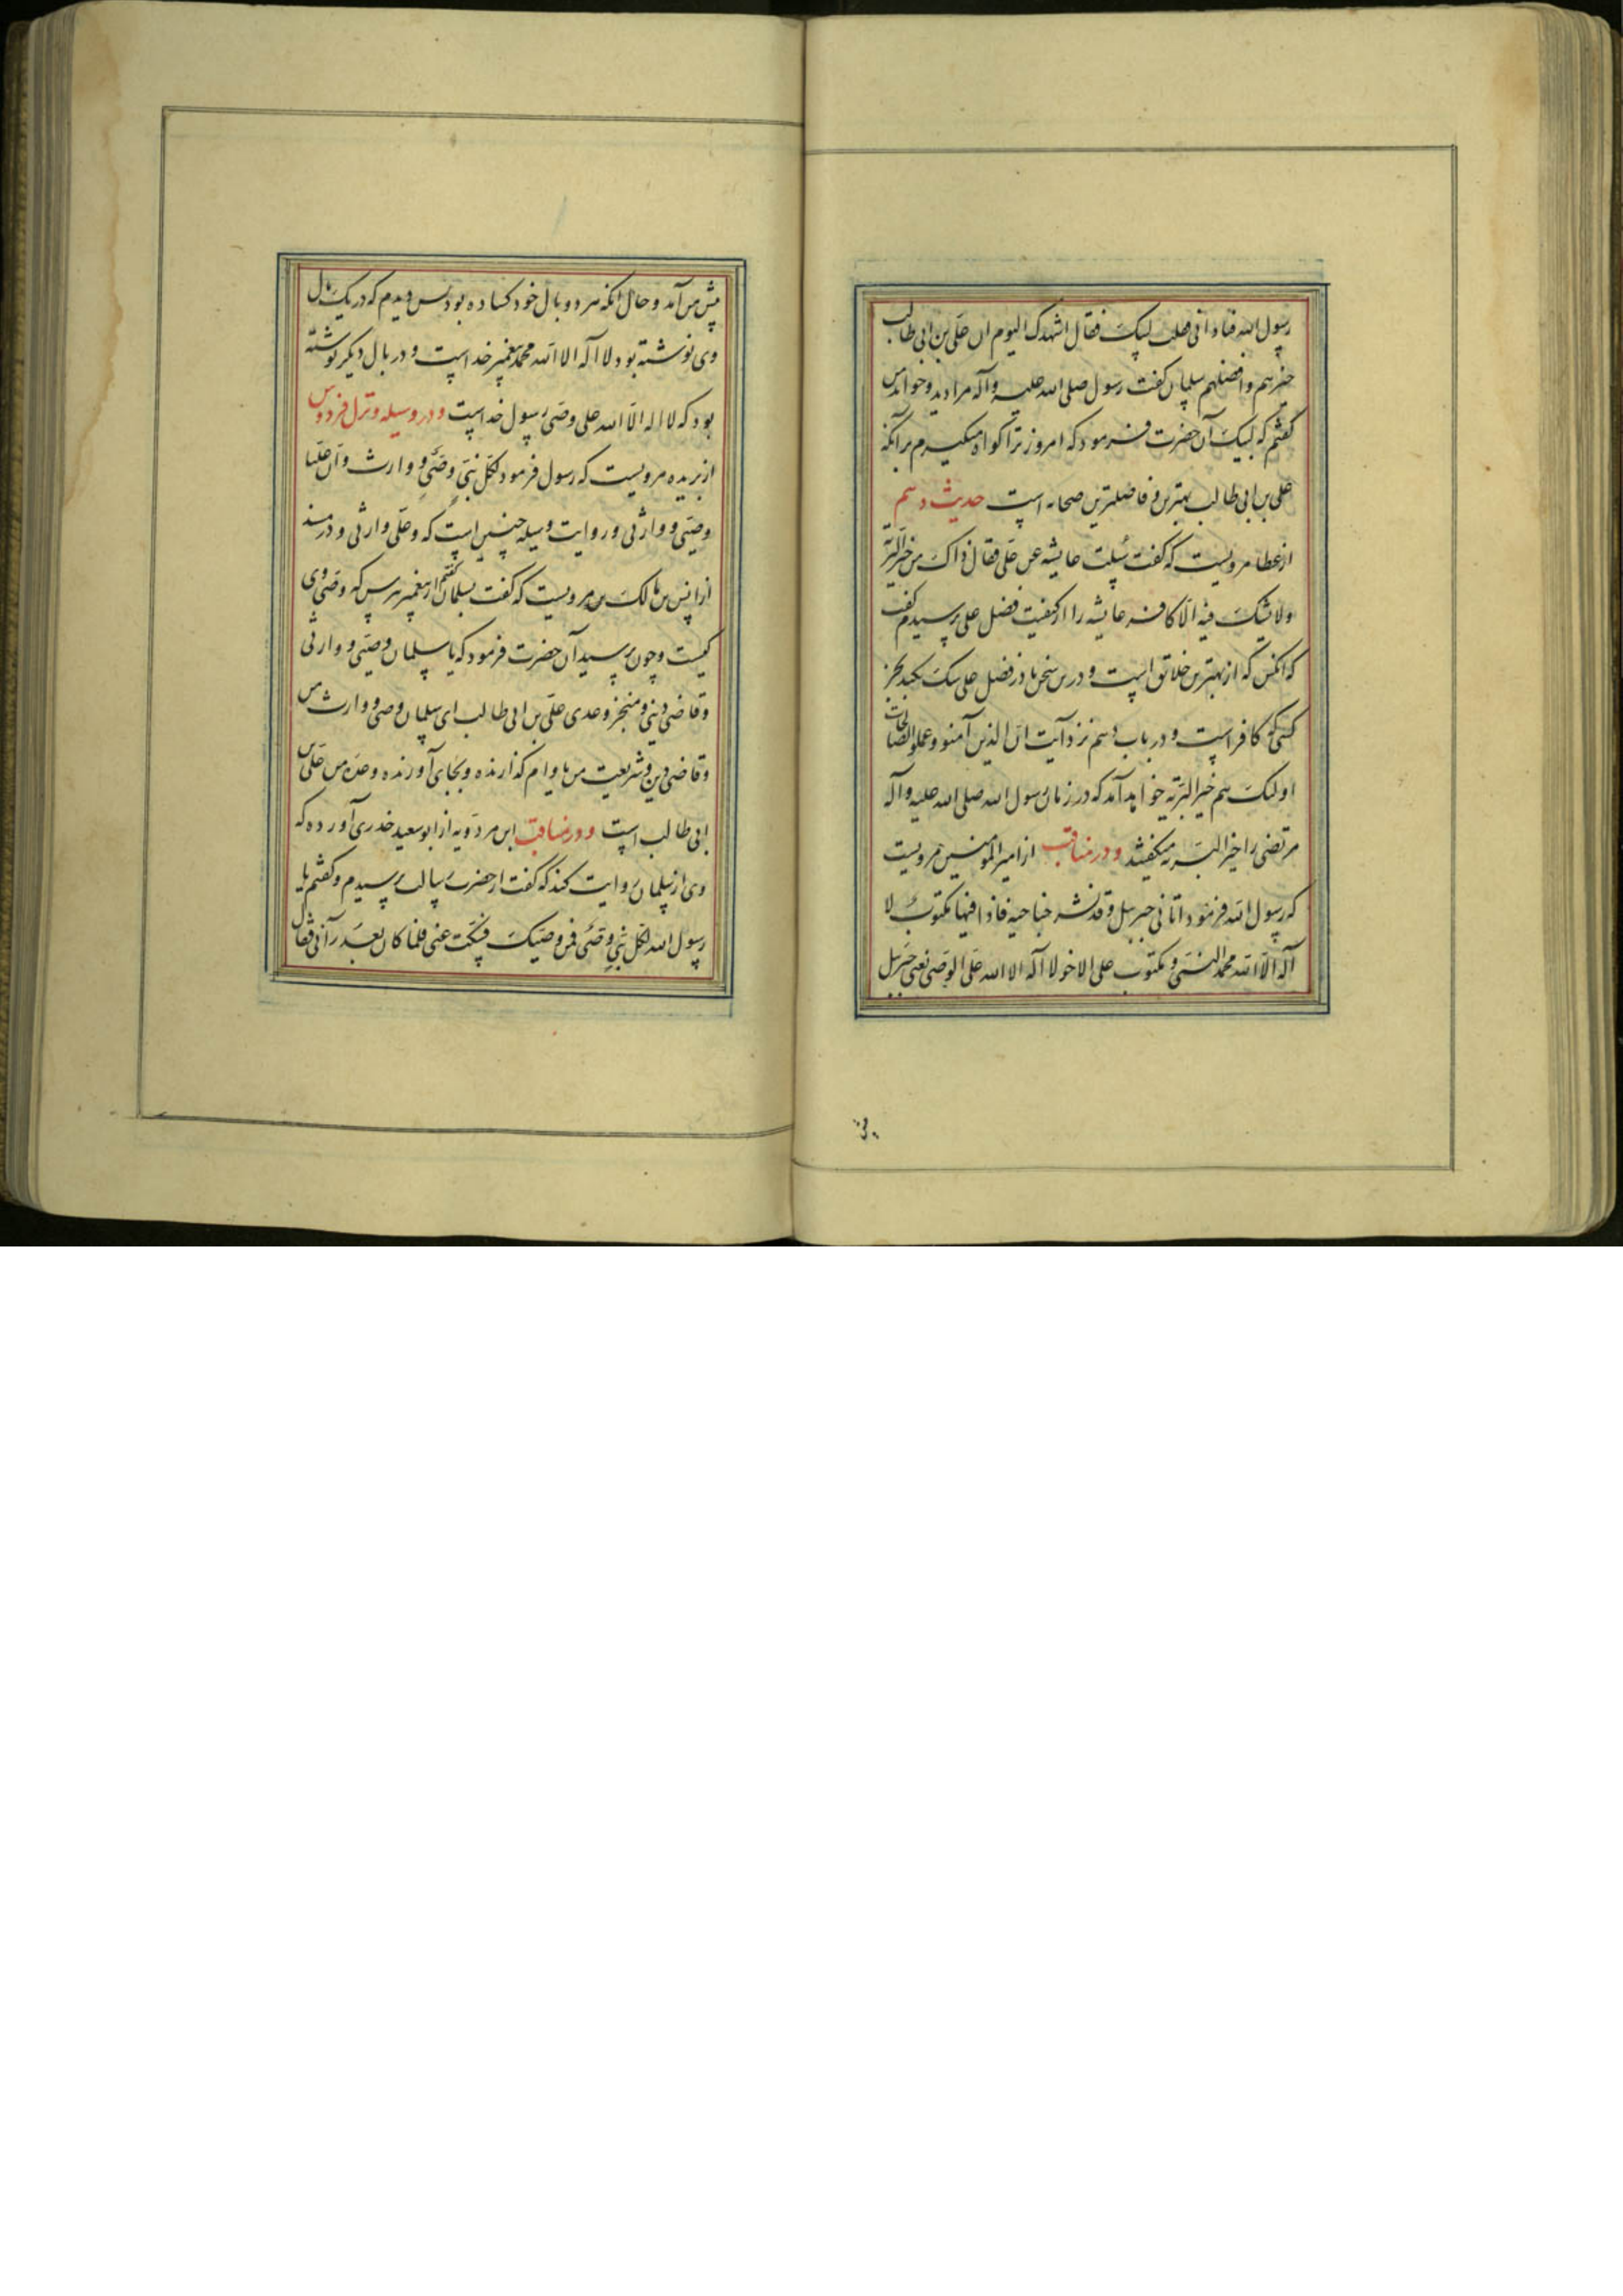 رسول الله فنادانی فقلت لبیک فقال اشهدک الیوم ان علی بن ابی طالب
خیرهم و افضلهم سلمان کفت رسول صلی الله علیه و آله مرا دید و خواند من
کفتم که لبیک آن حضرت فرمود که امروز ترا کواه میکیرم برآنکه
علی بن ابی طالب بهترین و فاضلترین صحابه است حدیث دهم
از عطا مرویست که کفت سئلت عایشه عن علی فقال ذاک من خیر البریة
ولا یشک فیه الا کافر عایشه را از کیفیت فضل علی پرسیدم کفت
که انکس که از بهترین خلائق است و درین سخن یا در فضل علی شک نکند بجز
کسی که کافر است و در باب دهم نزد آیت ان الذین آمنو و عملوا الصالحات
اولئک هم خیر البریه خواهد آمد که در زمان رسول الله صلی الله علیه و آله
مرتضی را خیر البریه میکفتند و در مناقب از امیر المؤمنین مرویست
که رسول الله فرمود اتانی جبرییل و قد نشر جناحیه فاذا فیها مکتوب لا
اله الا الله محمد النبی و مکتوب علی الاخر لا اله الا الله علی الوصی یعنی جبرییل
پیش
پیش من آمد و حال انکه هر دو بال خود کشاده بود پس دیدم که در یک بال
وی نوشته بود لا اله الا الله محمد پیغمبر خداست و در بال دیکر نوشته
بود که لا اله الا الله علی وصی رسول خداست و در وسیله و نزل فردوس
از بریده مرویست که رسول فرمود لکل نبی وصی و وارث و ان علیا
وصیی و وارثی و روایت وسیله چنین است که و علی وارثی و در مسند
از انس بن مالک مرویست که کفت بسلمان کفتم از پیغمبر بپرس که وصی وی
کیست و چون پرسید آن حضرت فرمود که یا سلمان وصیی و وارثی
و قاضی دینی و منجز وعدی علی بن ابی طالب ای سلمان وصی و وارث من
و قاضی دین و شریعت من یا وام کذارنده و بجای آورنده وعده من علی بن
ابی طالب است و در مناقب ابن مردویه از ابو سعید خدری آورده که
وی از سلمان روایت کند که کفت از حضرت رسالت پرسیدم و کفتم یا
رسول الله لکل نبی وصی فمن وصیک فسکت عنی فلما کان بعد رآنی فقال